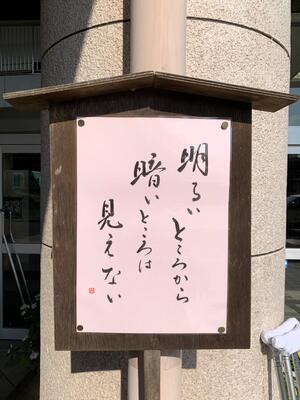 明るいところから
暗いところは
見えない